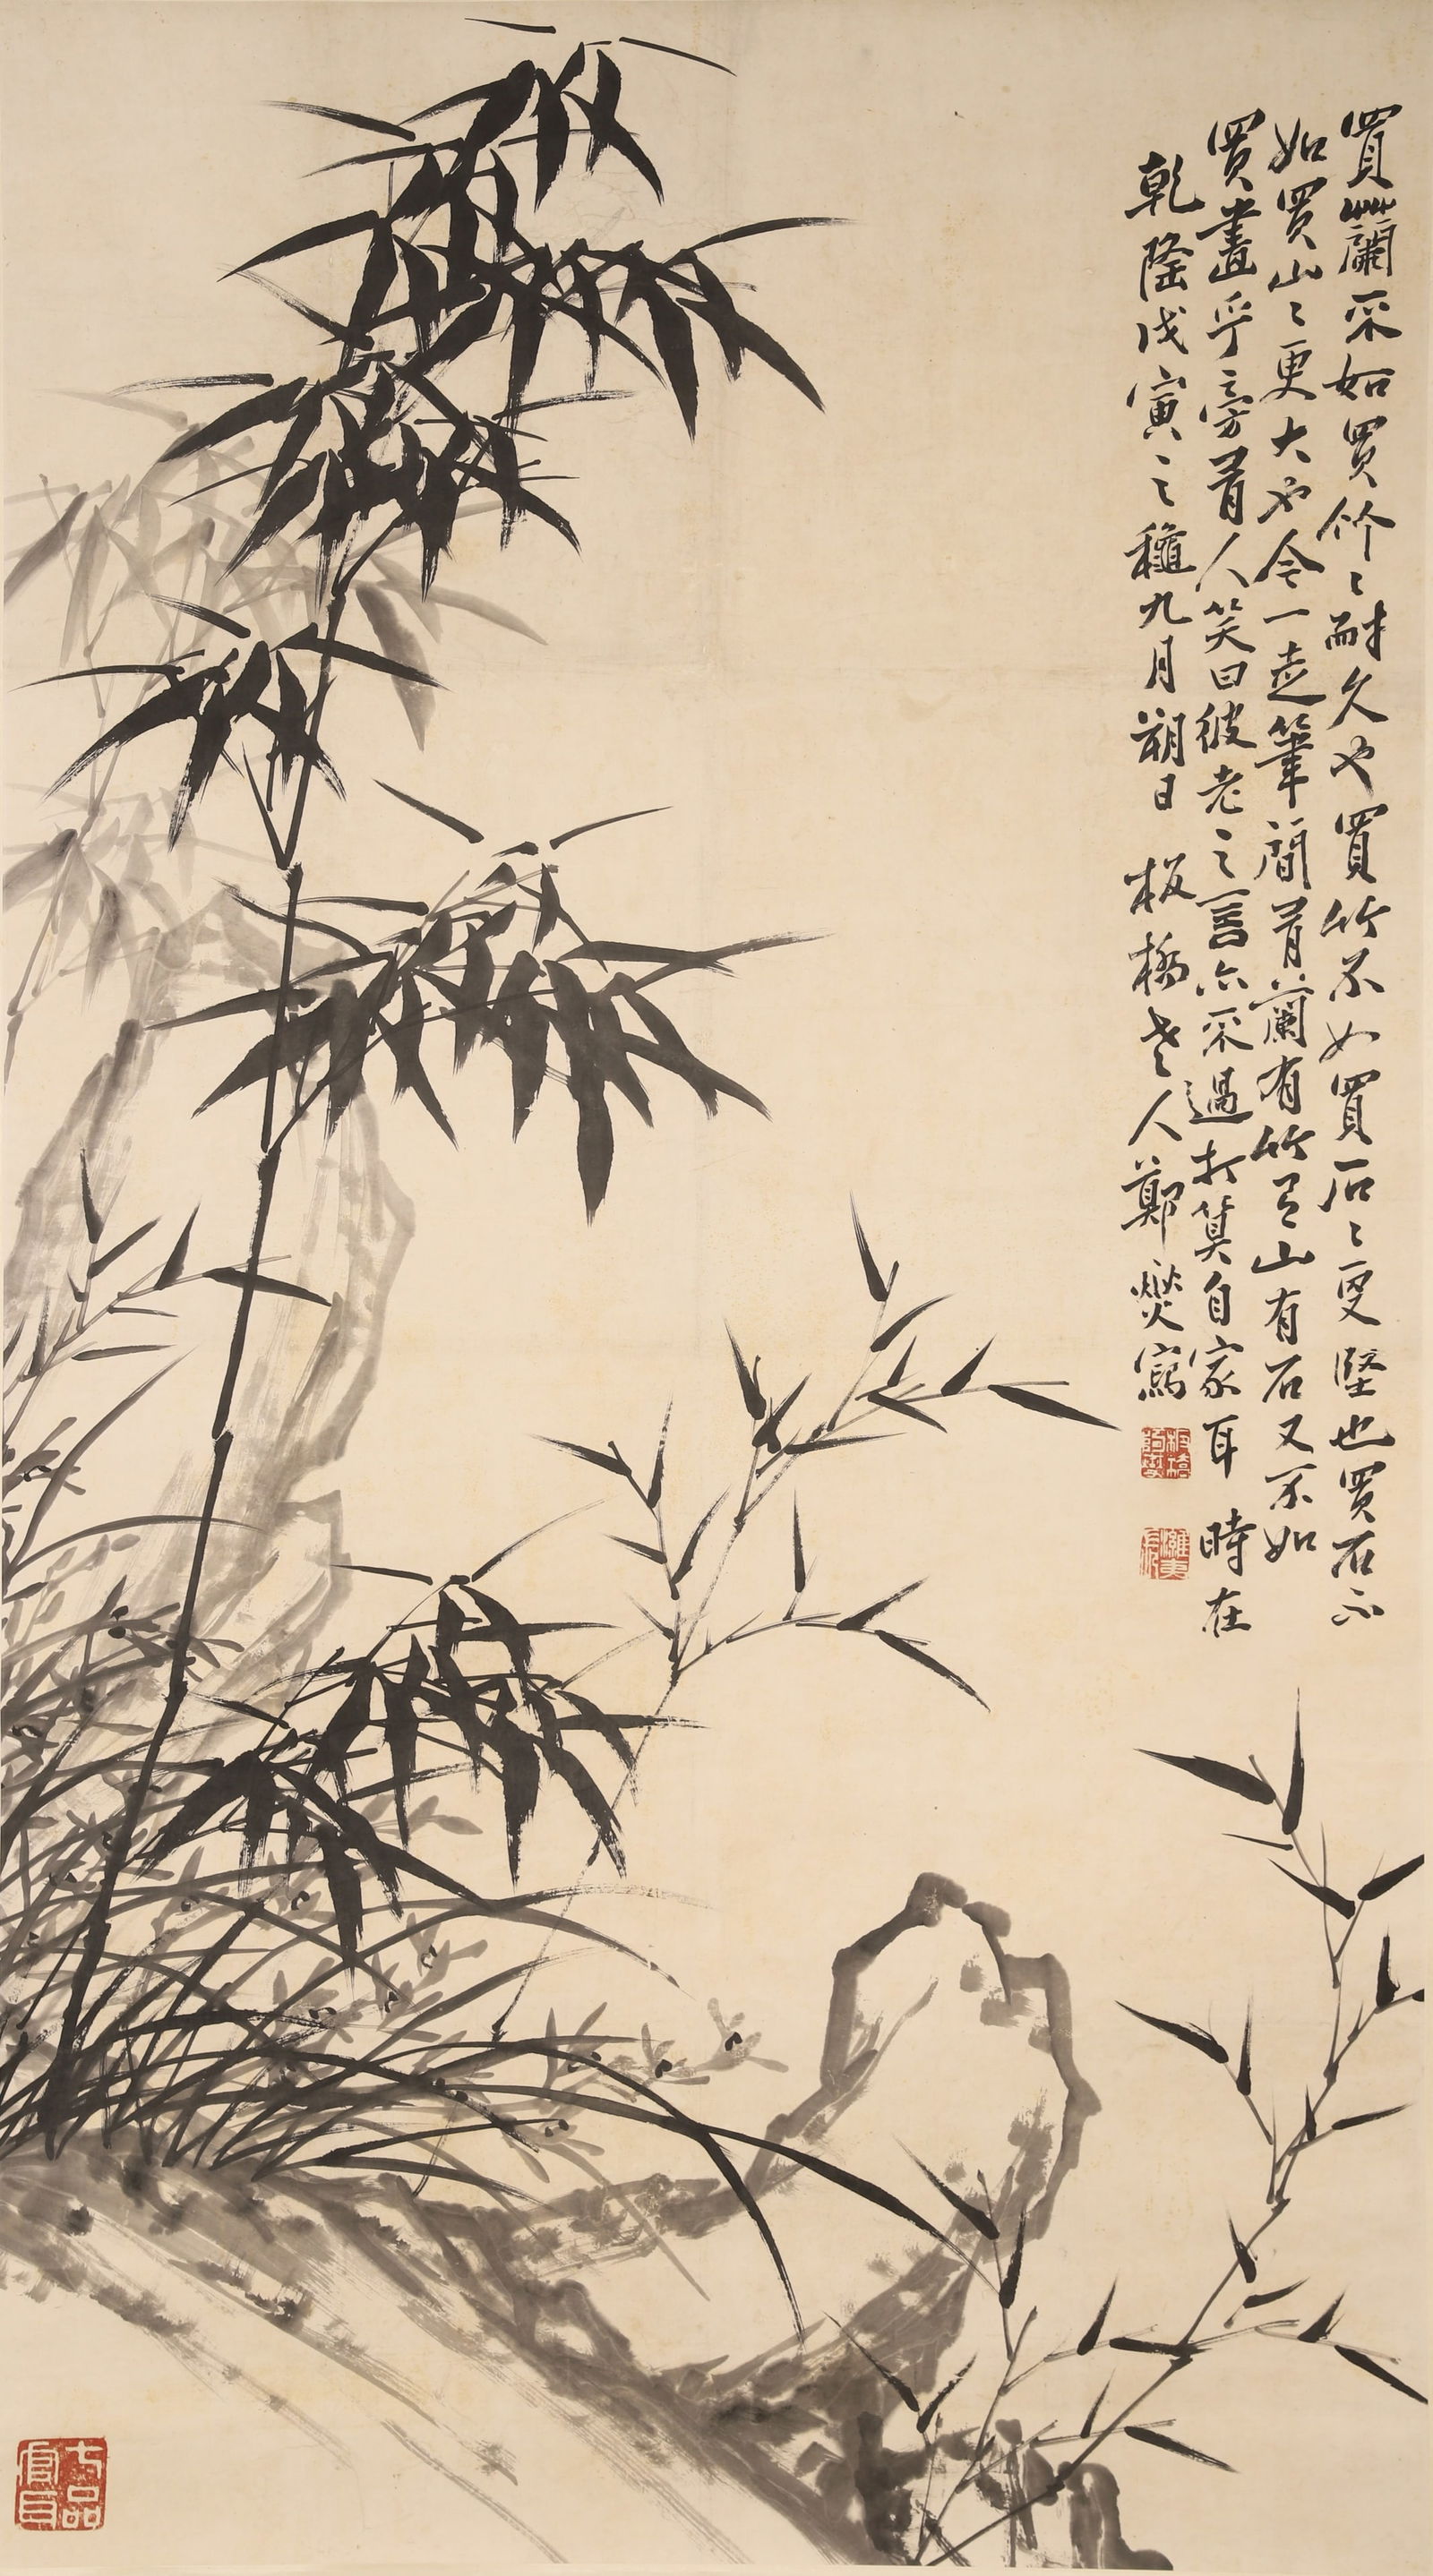 買蘭不如買竹〻耐久也買竹不如買石〻更堅也買石不
如買山〻更大也今一走筆間有蘭有竹有山有石又不如
買畫乎旁有人笑曰彼老之言亦不過打算自家耳時在
乾隆戊寅之龝九月朔日板橋老人鄭燮寫
七品官耳